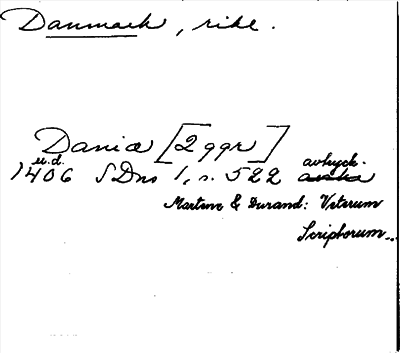 Danmark, rike.
Daniæ [2 ggr]
u.d.
avtryck.
1406 SDns 1, s. 522
Martene & Durand: Veterum
Scriptorum...